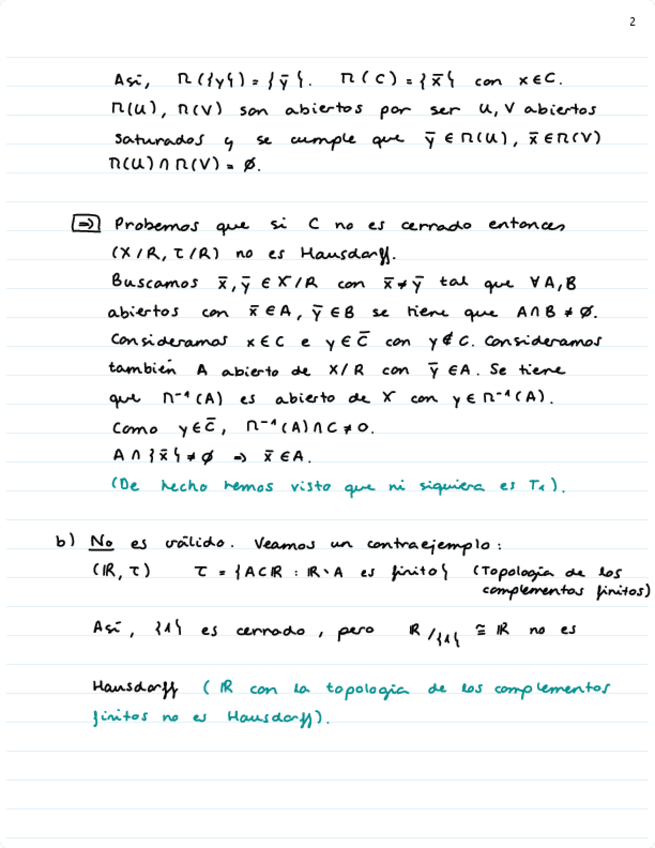 2
Así, Π({y}) = {ȳ}. Π(C) = {x̄} con x∈C.
Π(U), Π(V) son abiertos por ser U, V abiertos
saturados y se cumple que ȳ ∈ Π(U), x̄ ∈ Π(V)
Π(U) ∩ Π(V) = ∅.
⇒) Probemos que si C no es cerrado entonces
(X/R, τ/R) no es Hausdorff.
Buscamos x̄, ȳ ∈ X/R con x̄ ≠ ȳ tal que ∀A,B
abiertos con x̄ ∈ A, ȳ ∈ B se tiene que A∩B ≠ ∅.
Consideramos x∈C e y∈C̄ con y∉C. Consideramos
también A abierto de X/R con ȳ ∈ A. Se tiene
que Π⁻¹(A) es abierto de X con y ∈ Π⁻¹(A).
Como y∈C̄, Π⁻¹(A)∩C ≠ 0.
A ∩ {x̄} ≠ ∅ ⇒ x̄ ∈ A.
(De hecho hemos visto que ni siquiera es T₁).
b) No es válido. Veamos un contraejemplo:
(ℝ, τ) τ = {A⊂ℝ : ℝ∖A es finito} (Topología de los
complementos finitos)
Así, {1} es cerrado, pero ℝ/{1} ≅ ℝ no es
Hausdorff (ℝ con la topología de los complementos
finitos no es Hausdorff).